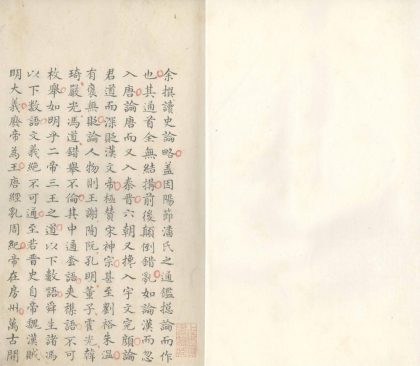 余撰讀史論略蓋因陽節潘氏之通鑑總論而作
也其通首全無結搆前後顛倒錯亂如論漢而忽
入唐論唐而又入秦晉六朝又攙入宇文完顏論
君道而深貶漢文帝極贊宋神宗甚至劉裕朱温
有褒無貶論人物則王謝陶阮孔明董子霍光韓
琦嚴光馮道錯舉不倫其中通套語夾襍語不可
枚舉如明乎二帝三王之道以下數語舜生諸馮
以下數語文義絶不可通至若晋史自帝魏漢賊
明大義廢帝為王唐經亂周紀帝在房州萬古開